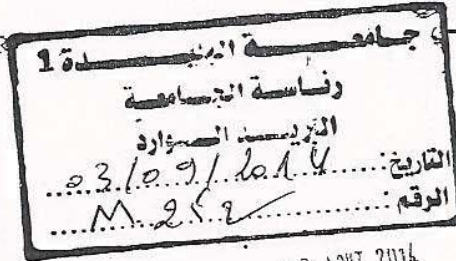 جامعة البليدة 1
رئاسة الجامعة
البريد الوارد
التاريخ: 03/09/2014
الرقم: M 252
AOUT 2014